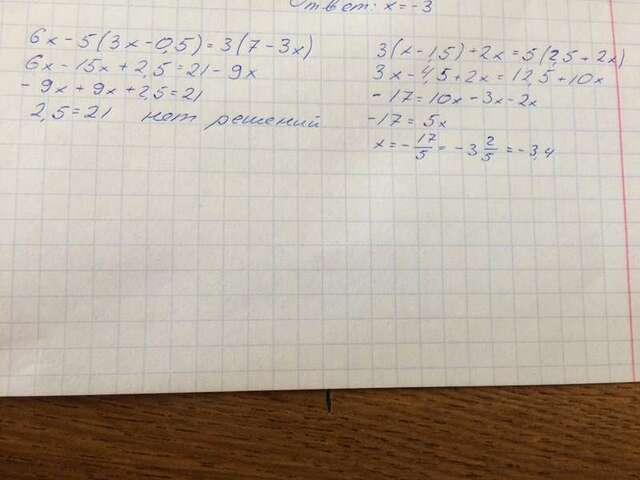 Ответ: x = -3
6x - 5(3x - 0,5) = 3(7 - 3x)
6x - 15x + 2,5 = 21 - 9x
- 9x + 9x + 2,5 = 21
2,5 = 21 нет решений
3(x - 1,5) + 2x = 5(2,5 + 2x)
3x - 4,5 + 2x = 12,5 + 10x
- 17 = 10x - 3x - 2x
- 17 = 5x
x = - 17/5 = - 3 2/5 = - 3,4